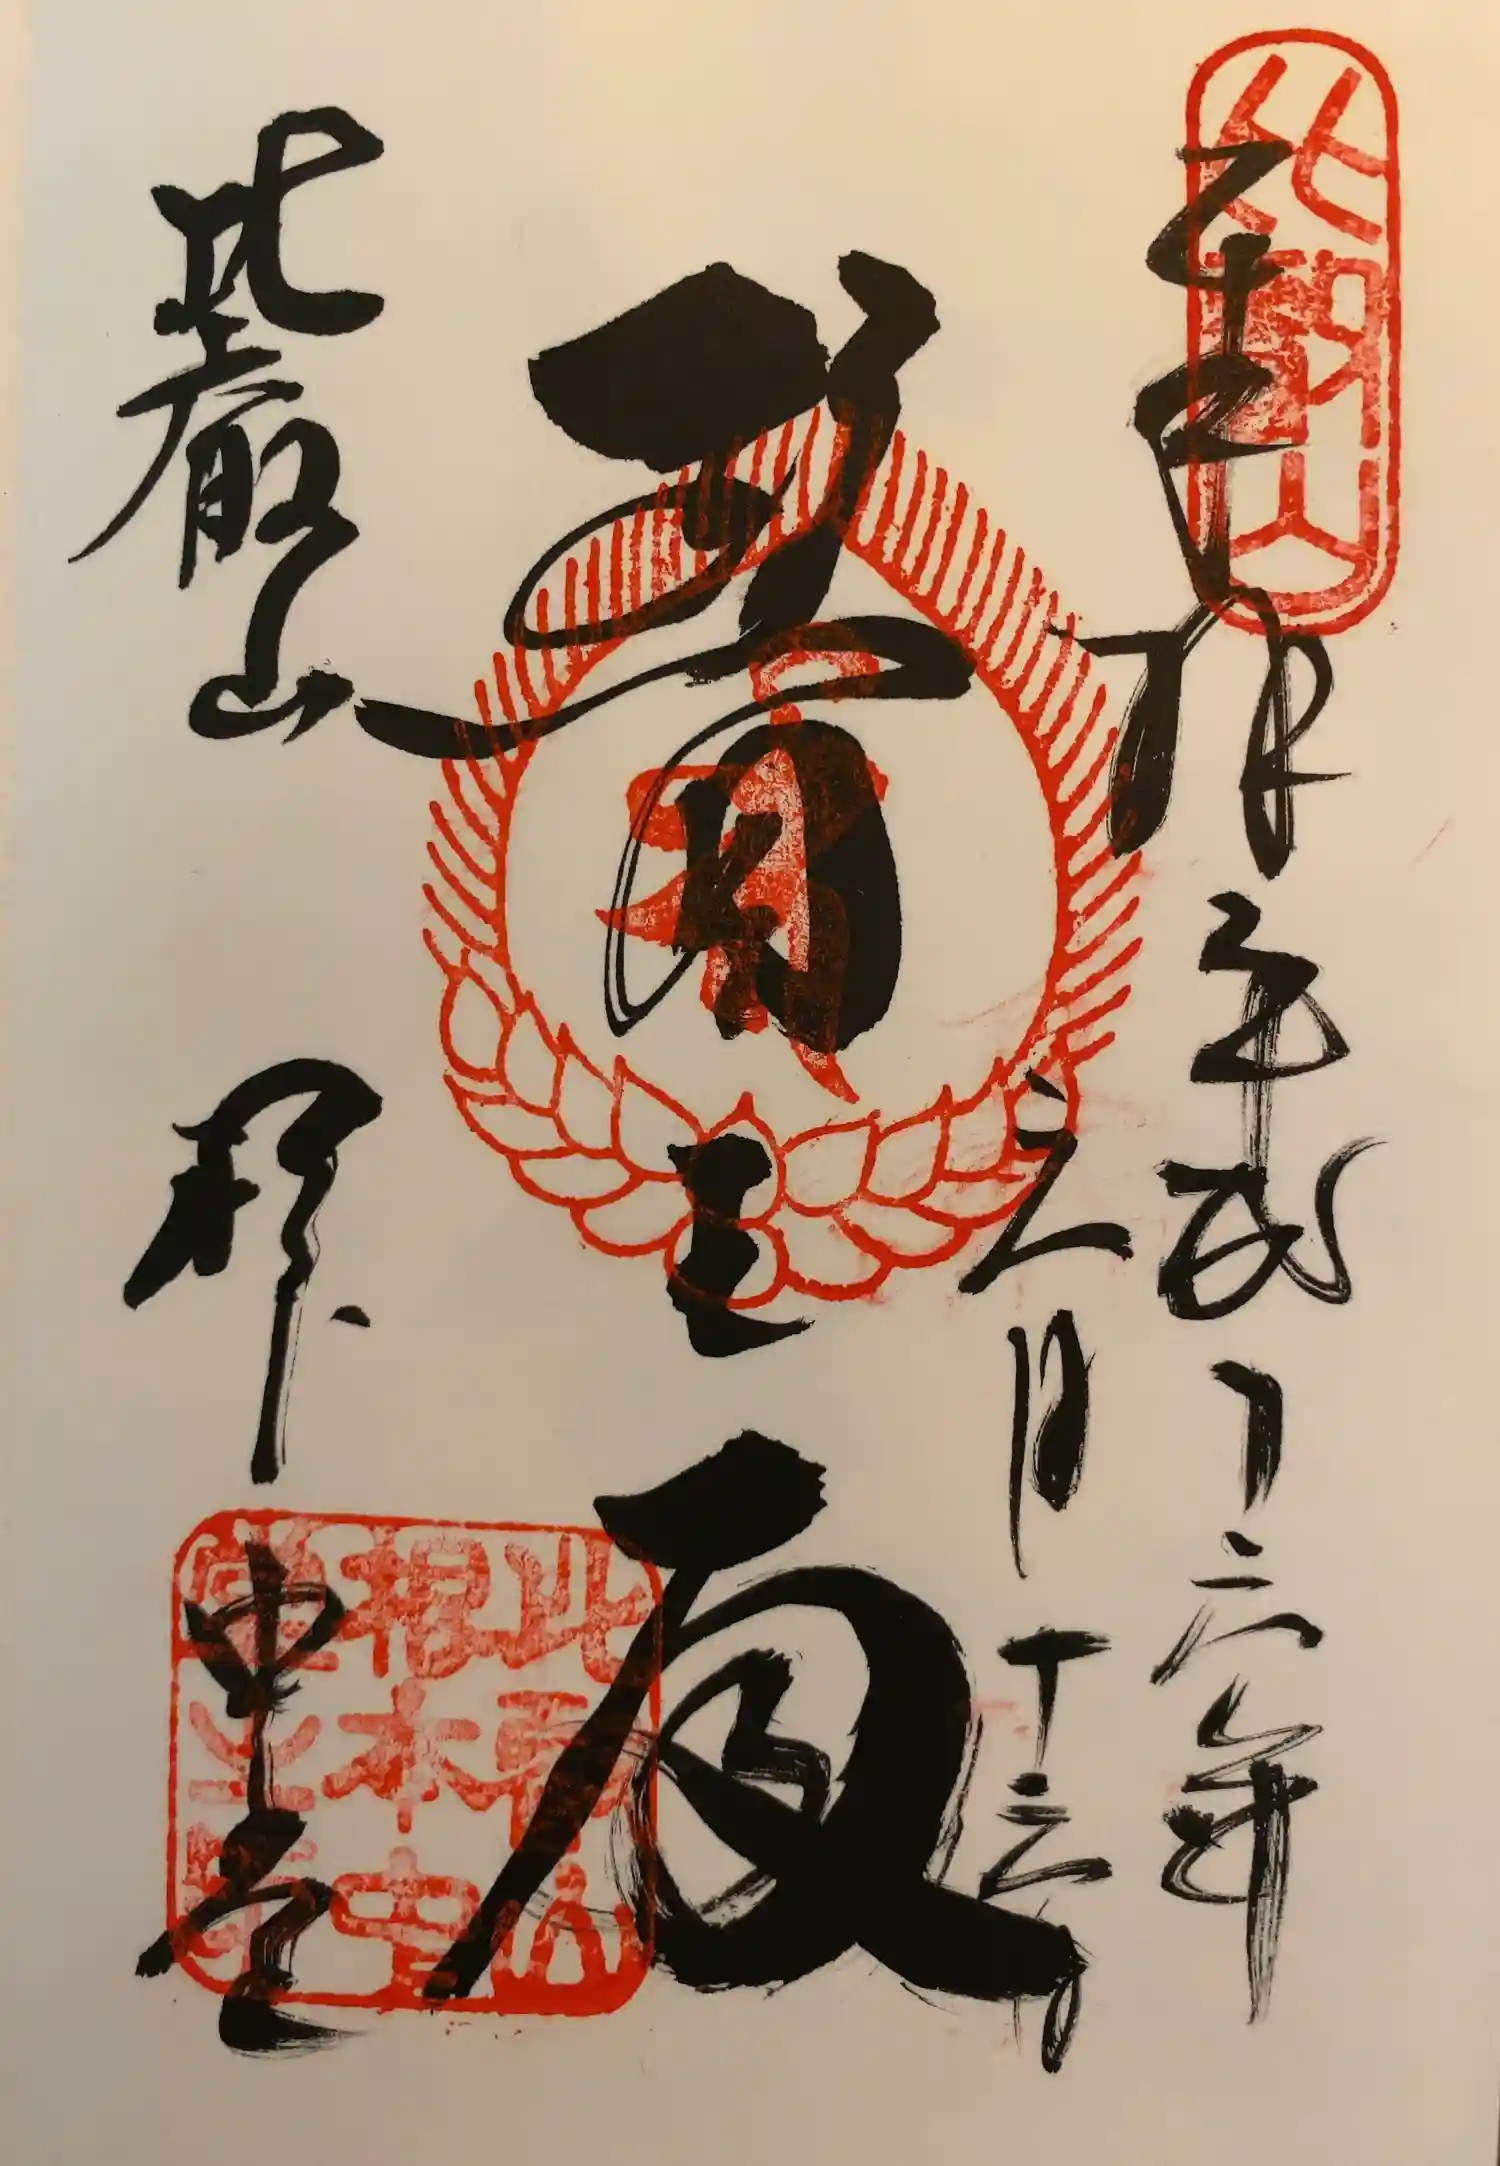 比叡山
奉拝 平成二十六年
三月十三日
醫王殿
比叡山
根本中堂
比叡山
根本中
堂之印